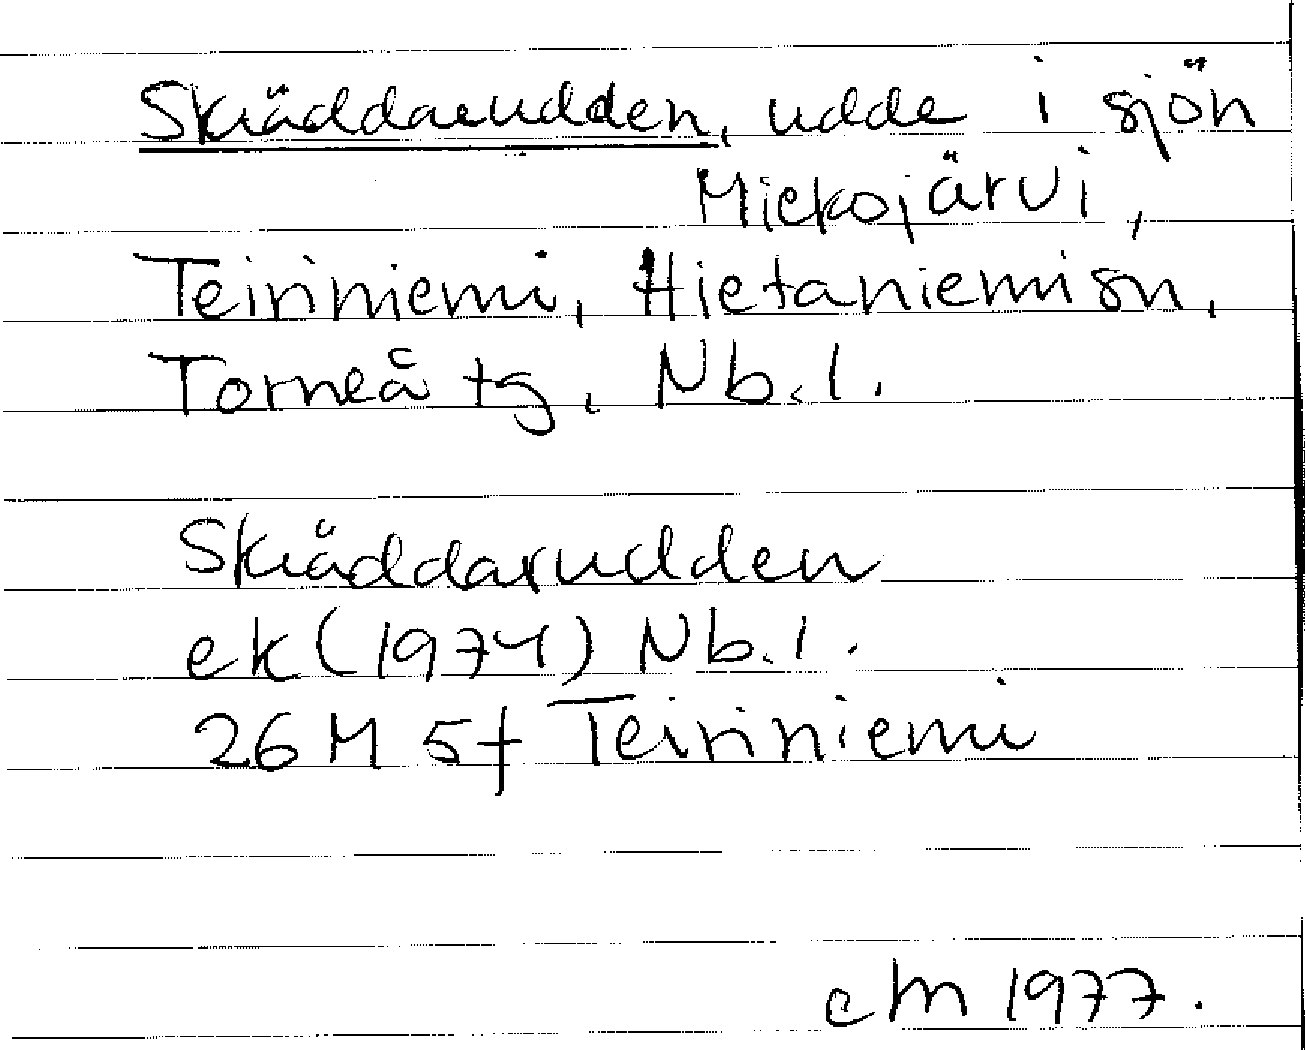 Skräddarudden, udde i sjön
Miekojärvi,
Teiriniemi, Hietaniemi sn,
Torneå tg, Nb. l.
Skräddarudden
ek (1974) Nb. l.
26 M 5f Teiriniemi
cM 1977.